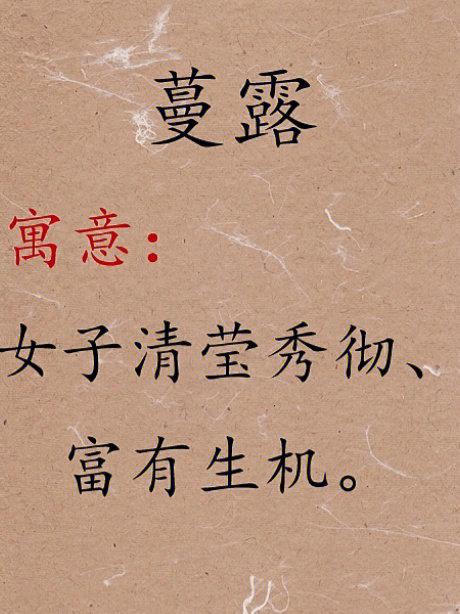 蔓露
寓意：
女子清莹秀彻、
富有生机。